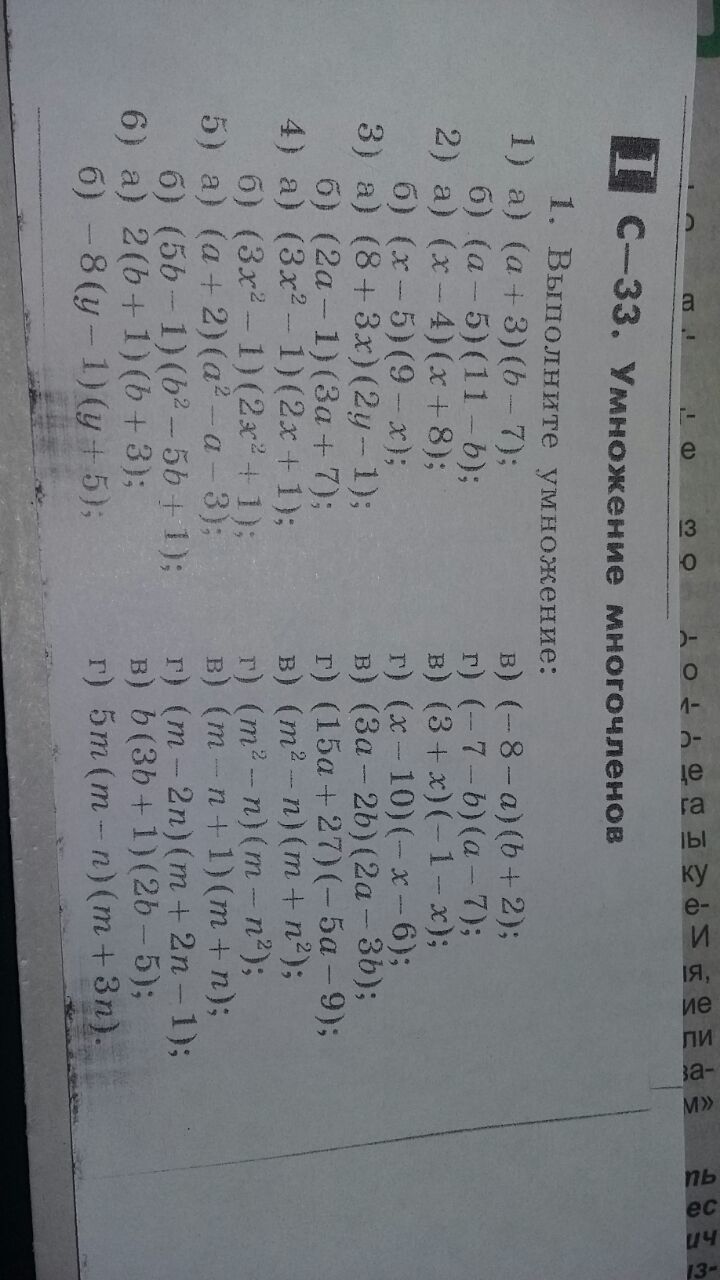 I С—33. Умножение многочленов
1. Выполните умножение:
1) а) (a + 3)(b − 7); в) (−8 − a)(b + 2);
б) (a − 5)(11 − b); г) (−7 − b)(a − 7);
2) а) (x − 4)(x + 8); в) (3 + x)(−1 − x);
б) (x − 5)(9 − x); г) (x − 10)(−x − 6);
3) а) (8 + 3x)(2y − 1); в) (3a − 2b)(2a − 3b);
б) (2a − 1)(3a + 7); г) (15a + 27)(−5a − 9);
4) а) (3x² − 1)(2x + 1); в) (m² − n)(m + n²);
б) (3x² − 1)(2x² + 1); г) (m² − n)(m − n²);
5) а) (a + 2)(a² − a − 3); в) (m − n + 1)(m + n);
б) (5b − 1)(b² − 5b + 1); г) (m − 2n)(m + 2n − 1);
6) а) 2(b + 1)(b + 3); в) b(3b + 1)(2b − 5);
б) −8(y − 1)(y + 5); г) 5m(m − n)(m + 3n).